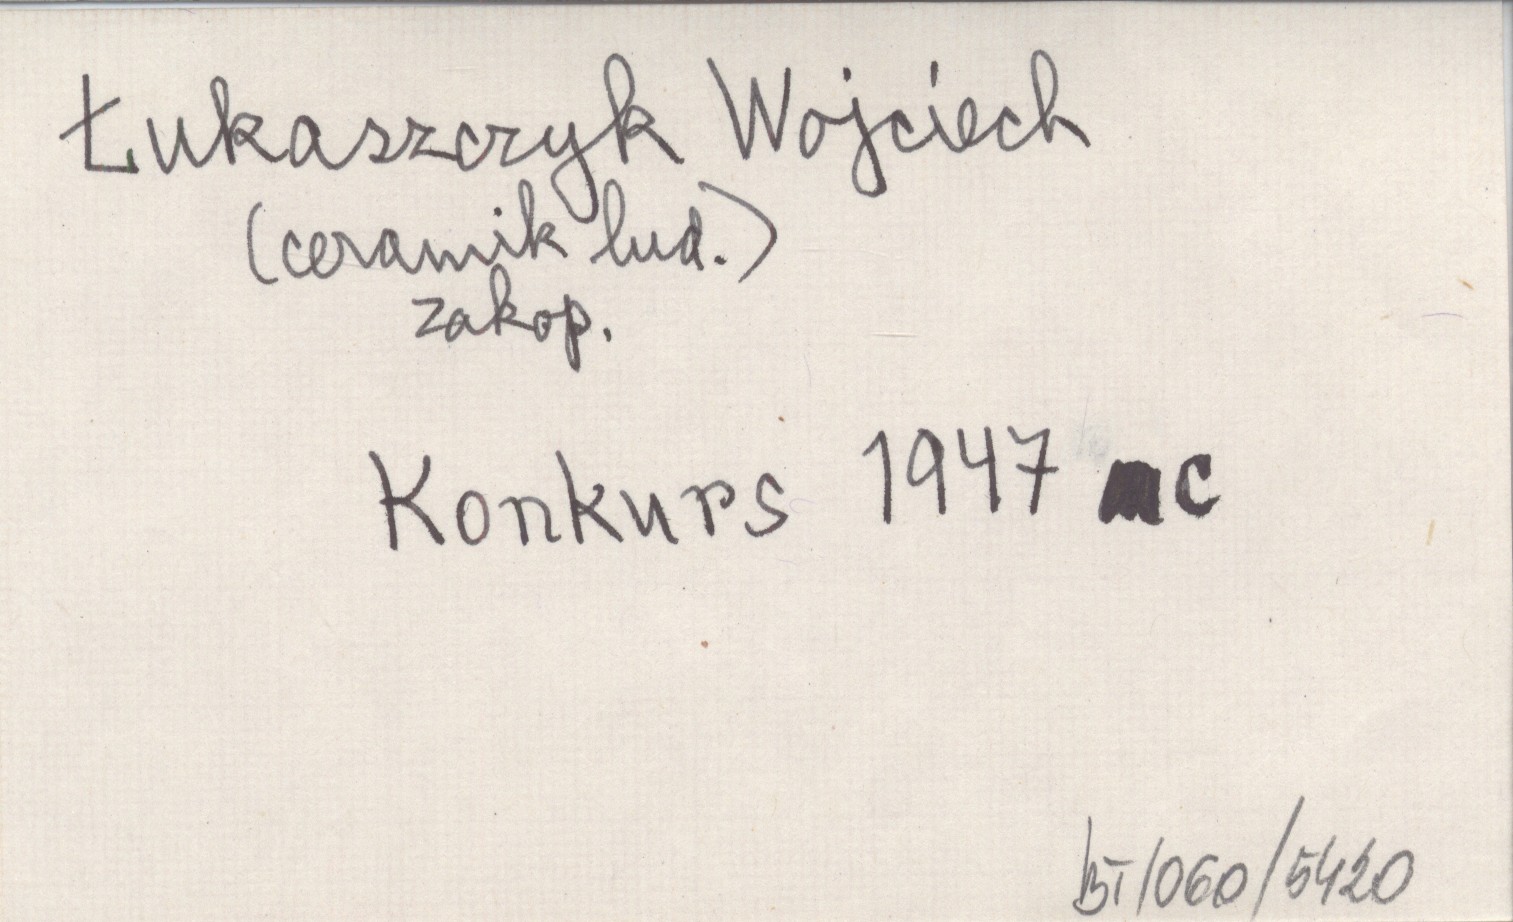 Łukaszczyk Wojciech
(ceramik lud.)
zakop.
Konkurs 1947 c
BT/060/5420